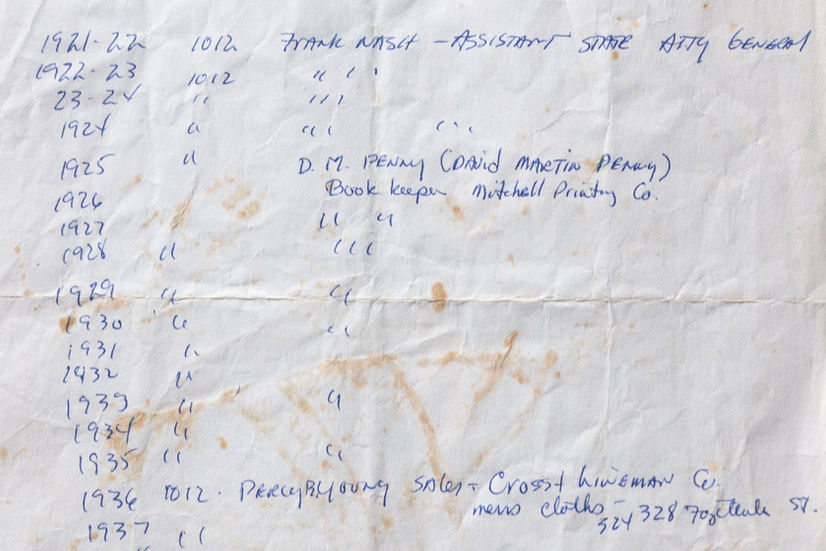 1921-22 1012 FRANK NASH - ASSISTANT STATE ATTY GENERAL
1922-23 1012 " " "
23-24 " " " "
1924 " " " " " "
1925 " D. M. PENNY (DAVID MARTIN PENNY)
1926 Book keeper Mitchell Printing Co.
1927 " "
1928 " " " "
1929 " "
1930 " "
1931 "
1932 "
1933 " "
1934 "
1935 " "
1936 1012. PERCY B. YOUNG SALES = Cross + LINEMAN Co.
mens cloths -
324 328 ST.
1937 "